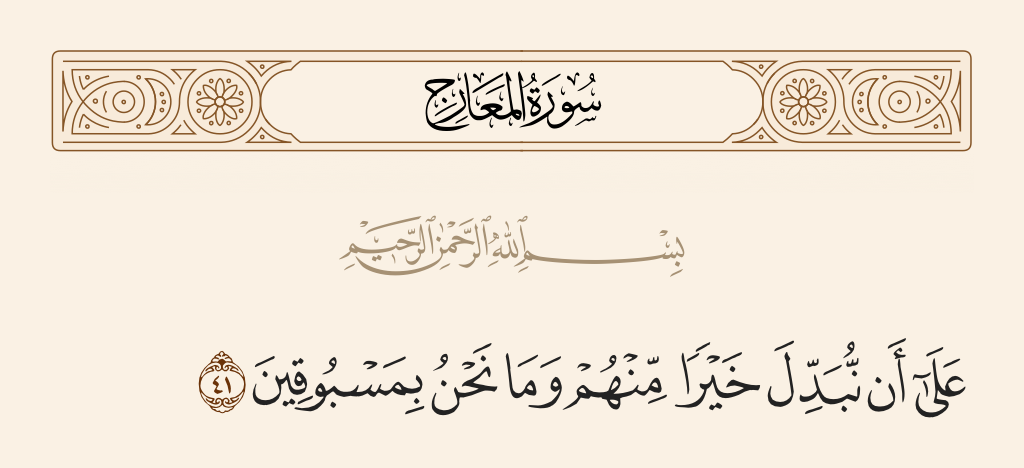 سُورَةُ المَعَارِجِ
بِسْمِ ٱللَّهِ ٱلرَّحْمَٰنِ ٱلرَّحِيمِ
عَلَىٰٓ أَن نُّبَدِّلَ خَيْرًا مِّنْهُمْ وَمَا نَحْنُ بِمَسْبُوقِينَ ٤١